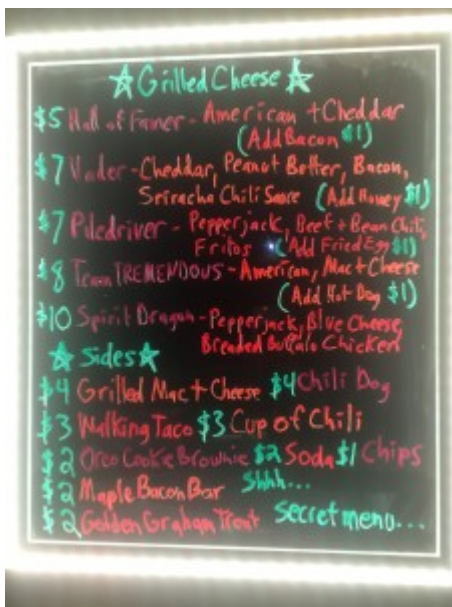 ☆ Grilled Cheese ☆
$5 Hall of Famer - American + Cheddar
(Add Bacon $1)
$7 Vader - Cheddar, Peanut Butter, Bacon,
Sriracha Chili Sauce (Add Honey $1)
$7 Piledriver - Pepperjack, Beef + Bean Chili,
Fritos (Add Fried Egg $1)
$8 Team TREMENDOUS - American, Mac + Cheese
(Add Hot Dog $1)
$10 Spirit Dragon - Pepperjack, Blue Cheese,
Breaded Buffalo Chicken
☆ Sides ☆
$4 Grilled Mac + Cheese $4 Chili Dog
$3 Walking Taco $3 Cup of Chili
$2 Oreo Cookie Brownie $2 Soda $1 Chips
$2 Maple Bacon Bar Shhh...
$2 Golden Graham Treat secret menu...